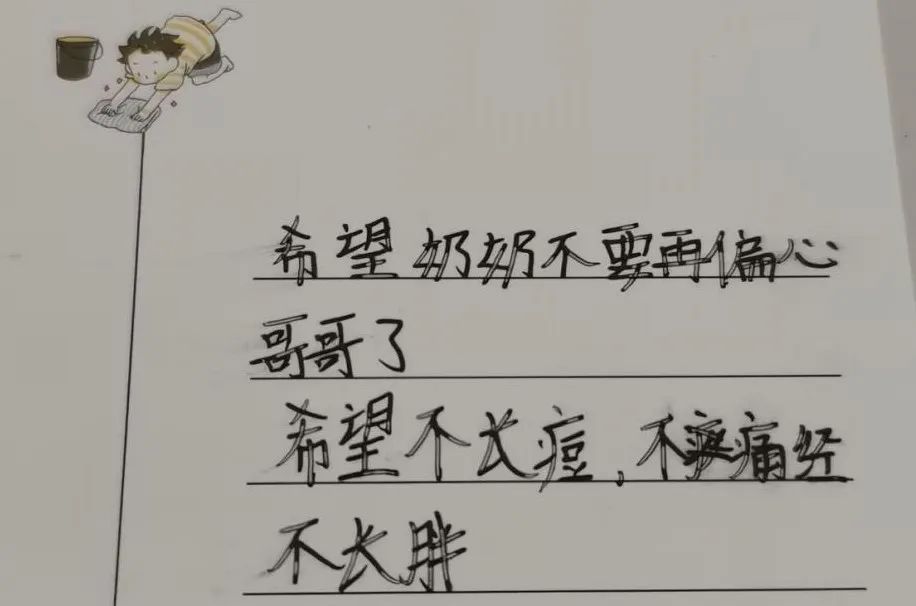 希望奶奶不要再偏心
哥哥了
希望不长痘,不痛经
不长胖